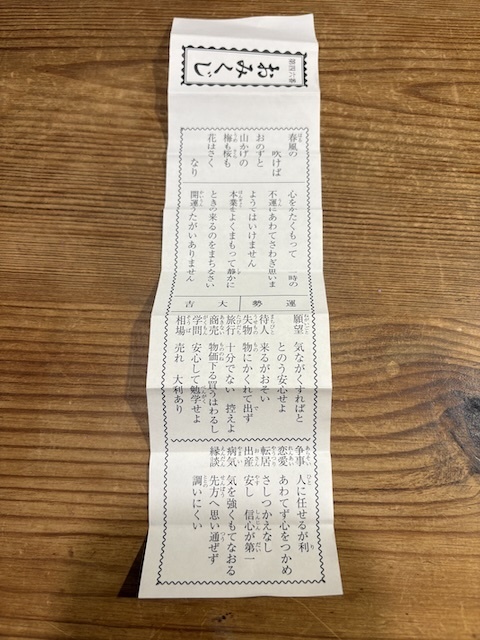 第四六番
おみくじ
春風の
吹けば
おのずと
山かげの
梅も桜も
花はさく
なり
心をかたくもって 一時の
不運にあわてさわぎ思いま
ようてはいけません
本業をよくまもって静かに
ときの来るのをまちなさい
開運うたがいありません
運勢 大吉
願望 気ながくすればと
とのう安心せよ
待人 来るがおそい
失物 物にかくれて出ず
旅行 十分でない 控えよ
商売 物価下る買うはわるし
学問 安心して勉学せよ
相場 売れ 大利あり
争事 人に任せるが利
恋愛 あわてず心をつかめ
転居 さしつかえなし
出産 安し 信心が第一
病気 気を強くもてなおる
縁談 先方へ思い通ぜず
調いにくい